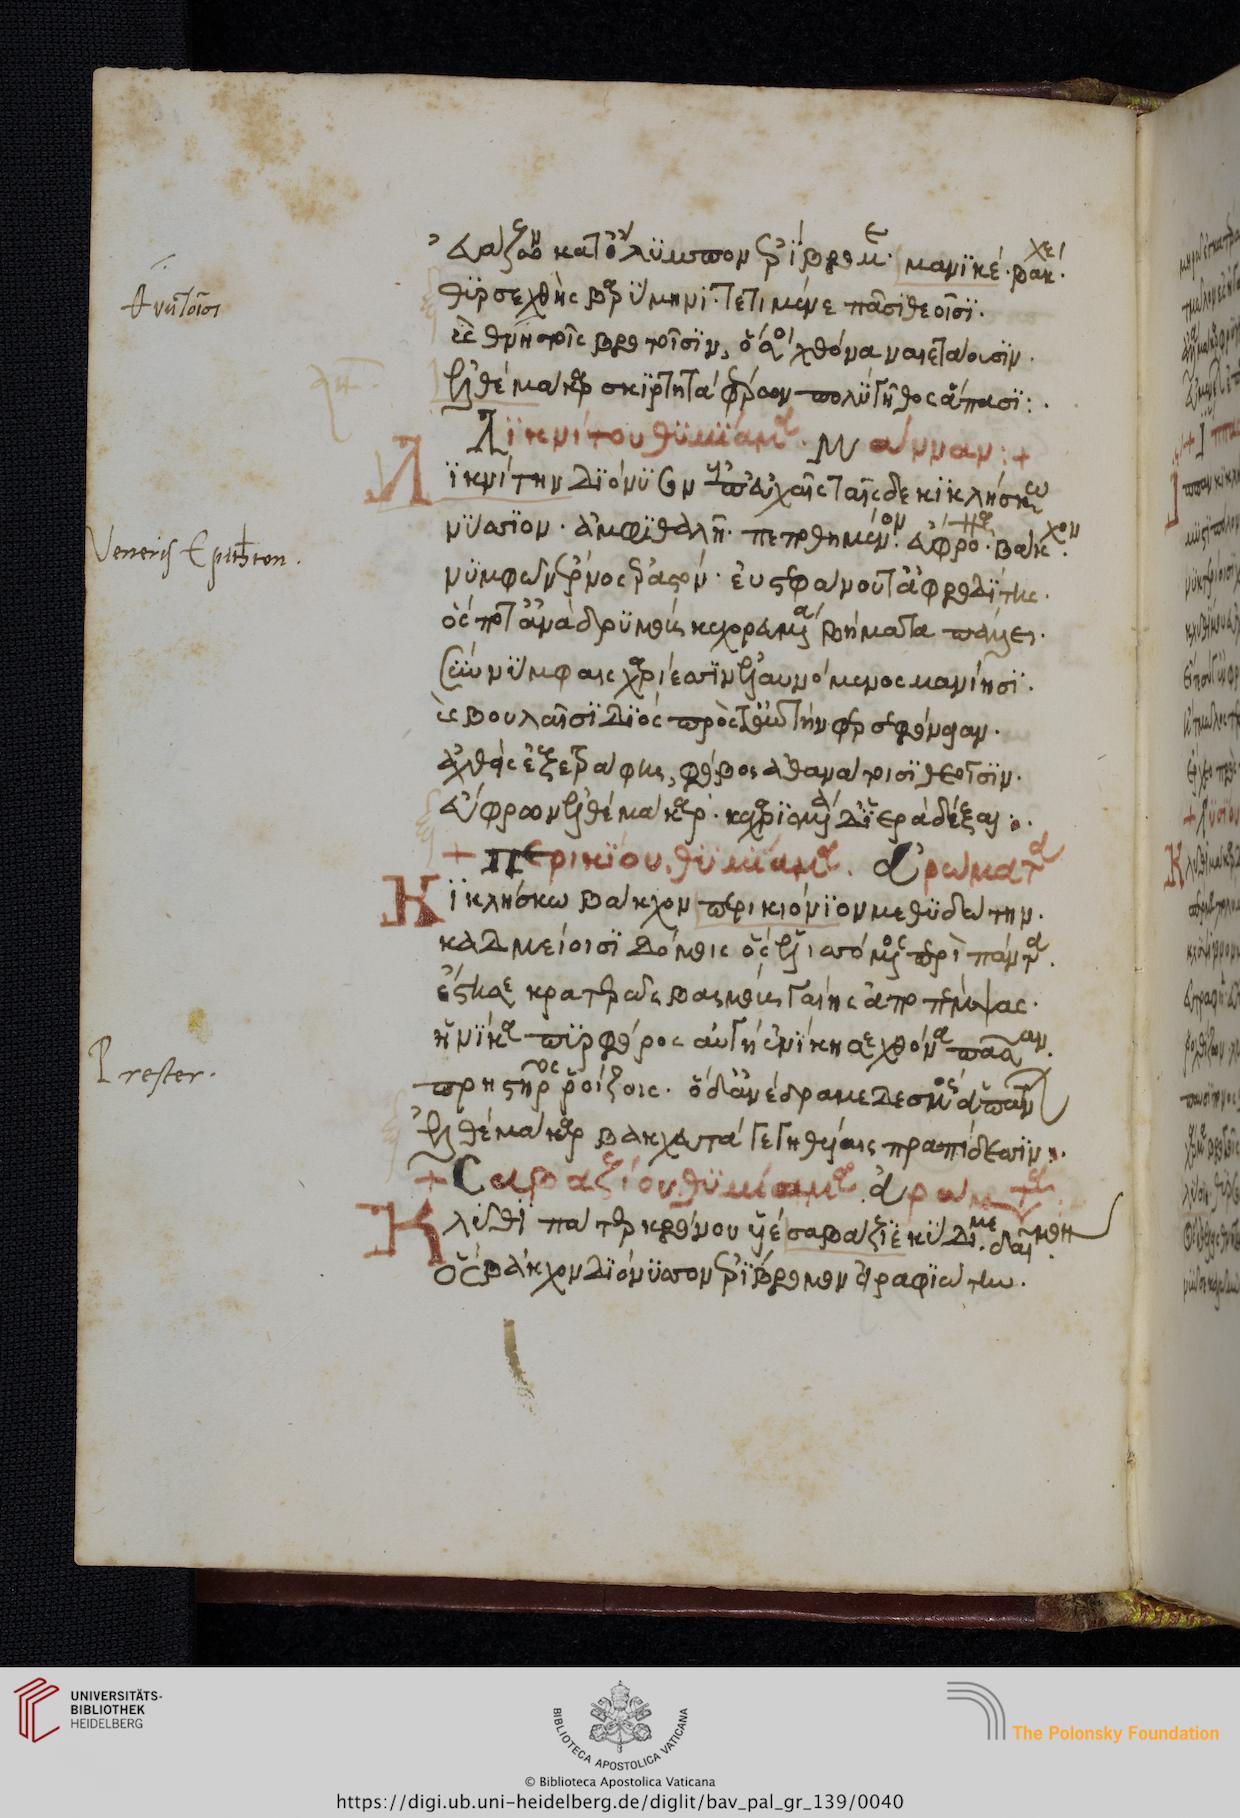 ἁλάζων κατ' ὄλυμπον ἐρίβρομε. μανικέ. βάκχε.
θυρσεγχὴς βαρύμηνι. τετιμένε πᾶσι θεοῖσι.
Αντοῖσι
καὶ θνητοῖς βροτοῖσιν, ὅσοι χθόνα ναιετάουσιν.
ἐλθὲ μάκαρ σκιρτητὰ φέρων πολὺ γῆθος ἅπασι:.
Λικνίτου θυμίαμα. Μάνναν:+
Λικνίτην διόνυσον ἐπ' εὐχαῖς ταῖσδε κικλήσκω
νύσιον. ἀμφιθαλῆ. πεποθημένον. εὔφρονα. βάκχον.
Veneris Epitheton.
νυμφῶν ἔρνος ἐραστόν. ἐυστεφάνου τ' ἀφροδίτης.
ὅς ποτ' ἀνὰ δρυμοὺς κεχορευμένα βήματα πάλλες.
σὺν νύμφαις χαρίεσσιν ἐλαυνόμενος μανίῃσι.
καὶ βουλαῖσι διὸς πρὸς τ' ἀγαυὴν φερσεφόνειαν.
ἀχθεὶς ἐξετράφης, φόβος ἀθανάτοισι θεοῖσιν.
εὔφρων ἐλθὲ μάκαρ. κεχαρισμένα δ' ἱερὰ δέξαι:.
+ περικιονίου. θυμίαμα. ἀρώματα
Κικλήσκω βάκχον περικιόνιον μεθυδώτην.
καδμείοισι δόμοις ὃς ἑλισσόμενος περὶ πάντα.
ἔστησε κρατερῶς βρασμοὺς γαίης ἀποπέμψας.
ἡνίκα πυρφόρος αὐγὴ ἐκίνησε χθόνα πᾶσαν.
Prester.
πρηστῆρος ῥοίζοις. ὃ δ' ἀνέδραμε δεσμὸς ἁπάντων
ἐλθὲ μάκαρ βακχευτὰ γεγηθυίαις πραπίδεσσιν:.
+ Σαβαζίου. θυμίαμα. ἀρώματα
Κλῦθι πάτερ κρόνου υἱὲ σαβάζιε κύδιμε δαῖμον
ὃς βάκχον διόνυσον ἐρίβρομον εἰραφιώτην.
UNIVERSITÄTS-
BIBLIOTHEK
HEIDELBERG
BIBLIOTECA APOSTOLICA VATICANA
The Polonsky Foundation
© Biblioteca Apostolica Vaticana
https://digi.ub.uni-heidelberg.de/diglit/bav_pal_gr_139/0040